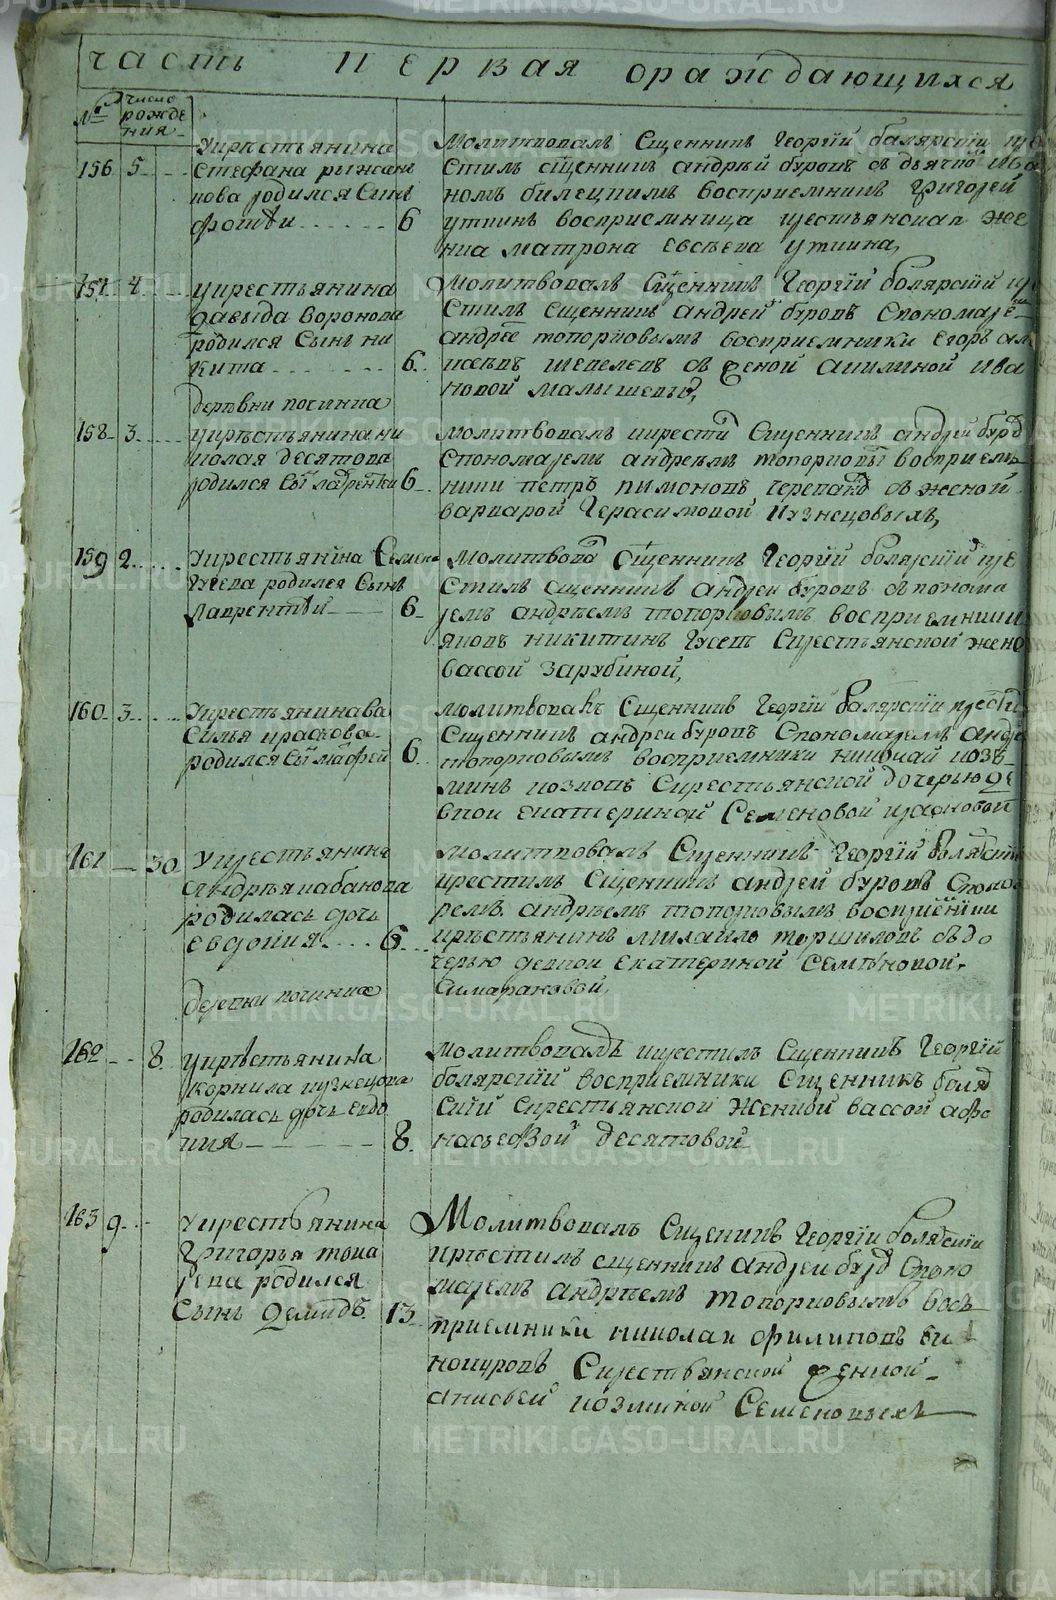 часть первая ораждающихся
№ число рождения
156 5 укрестьянина
Стефана
кова родился Сынъ
фотѣи 6
Молитвовалъ Сщенникъ Георгий балярский
Стилъ сщенникъ андрѣй буровъ дьячко ива
номъ билецкимъ восприемникъ григорей
уткинъ восприемница крестьянская же
нка матрона евсѣева уткина,
157 4 укрестьянина
давыда воронова
родился Сынъ ни
кита 6
Молитвовалъ Сщенникъ Георгий болярский
Стилъ Сщенникъ андрей буровъ Спономаре
андрее топорковымъ восприемники Егоръ
шепелевъ съ женой акилиной ива
новой малышевы,
деревни починка
158 3 укрестьянина ни
колая десятова
родился Сы лаврентий 6
молитвовалъ икрести Сщенникъ андрей буро
Спономаремъ андреемъ топорковы восприем
ники петръ пимоновъ черепано съ женой
варварой Герасимовой Кузнецовыхъ,
159 2 укрестьянина Семена
гусева родился Сынъ
Лаврентѣй 6
Молитвова Сщенникъ Георгий болярский кре
Стилъ сщенникъ андреи буровъ съ понома
ремъ андрѣемъ топорковымъ восприемники
яковъ никитинъ гусевъ Скрестьянской жено
вассой зарубиной,
160 3 укрестьянина ва
Силья краскова
родился Сы матфей 6
молитвовалъ Сщенникъ Георгий балярский крести
Сщенникъ андреи буровъ Спономаремъ андре
топорковымъ восприемники николай козь
минъ козловъ Скрестьянской дочерью де
вкои екатериной Семеновой красковой
161 30 укрестьянина
андрѣя кабанова
родилась дочь
евдокия 6
молитвовалъ Сщенникъ Георгий болярский
крестилъ Сщенникъ андрей буровъ Споно
ремъ андрѣемъ топорковымъ восприемники
крѣстьянинъ михайло торшиловъ съ до
черью девкои екатериной семѣновой
Симараковой,
деревни починка
162 8 укрѣстьянина
корнила кузнецова
родилась дочь евдо
кия 8
молитвовалъ икрестилъ Сщенникъ Георгий
болярский восприемники Сщенникъ боляр
ский Скрестьянской женкой вассой афо
насьевой десятовой
163 9 укрестьянина
григорья тока
рева родился
Сынъ демидъ 13
Молитвовалъ Сщеникъ Георгий болярский
крѣстилъ сщенникъ андреи буро споно
маремъ андрѣемъ топорковымъ вось
приемники николаи филиповъ ви
нокуровъ Скрестьянской женкой
анисьей козминой Семеновыхъ